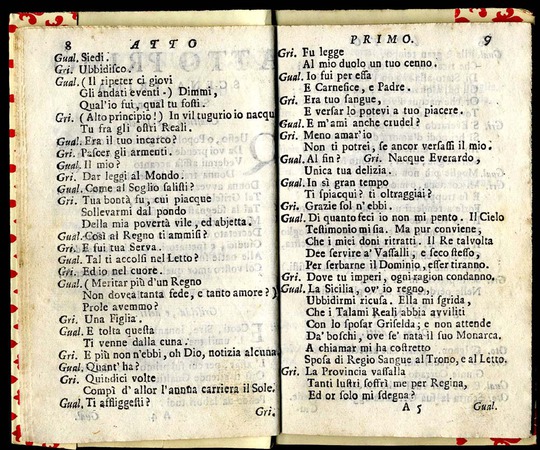 8 ATTO
Gual. Siedi.
Gri. Ubbidisco.
Gual. ( Il ripeter ci giovi
Gli andati eventi -) Dimmi,
Qual'io fui, qual tu fosti.
Gri. ( Alto principio!) In vil tugurio io nacqui
Tu fra gli ostri Reali.
Gual. Era il tuo incarco?
Gri. Pascer gli armenti.
Gual. Il mio?
Gri. Dar leggi al Mondo.
Gual. Come al Soglio salisti?
Gri. Tua bontà fu, cui piacque
Sollevarmi dal pondo
Della mia povertà vile, ed abjetta.
Gual. Così al Regno ti ammisi?
Gri. E fui tua Serva.
Gual. Tal ti accolsi nel Letto?
Gri. Ed io nel cuore.
Gual. ( Meritar più d'un Regno
Non dovea tanta fede, e tanto amore?)
Prole avemmo?
Gri. Una Figlia.
Gual. E tolta questa
Ti venne dalla cuna.
Gri. E più non n'ebbi, oh Dio, notizia alcuna
Gual. Quant' ha?
Gri. Quindici volte
Compì d' allor l'annua carriera il Sole.
Gual. Ti affliggesti?
Gri.
PRIMO. 9
Gri. Fu legge
Al mio duolo un tuo cenno.
Gual. Io fui per essa
E Carnefice, e Padre.
Gri. Era tuo sangue,
E versar lo potevi a tuo piacere.
Gual. E m'ami anche crudel?
Gri. Meno amar'io
Non ti potrei, se ancor versassi il mio.
Gual. Al fin? Gri. Nacque Everardo,
Unica tua delizia.
Gual. In sì gran tempo
Ti spiacqui? ti oltraggiai?
Gri. Grazie sol n'ebbi.
Gual. Di quanto feci io non mi pento. Il Cielo
Testimonio mi sia. Ma pur conviene,
Che i miei doni ritratti. Il Re talvolta
Dee servire a' Vassalli, e seco stesso,
Per serbarne il Dominio, esser tiranno.
Gri. Dove tu imperi, ogni ragion condanno.
Gual. La Sicilia, ov' io regno,
Ubbidirmi ricusa. Ella mi sgrida,
Che i Talami Reali abbia avviliti
Con lo sposar Griselda; e non attende
Da' boschi, ove se' nata il suo Monarca.
A chiamar mi ha costretto
Sposa di Regio Sangue al Trono, e al Letto.
Gri. La Provincia vassalla
Tanti lustri soffrì me per Regina,
Ed or solo mi sdegna?
A 5 Gual.